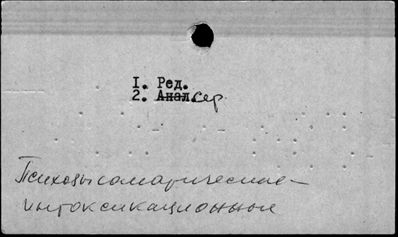 I. Ред.
2. Анал. сер.
Психозы соматические –
интоксикационные